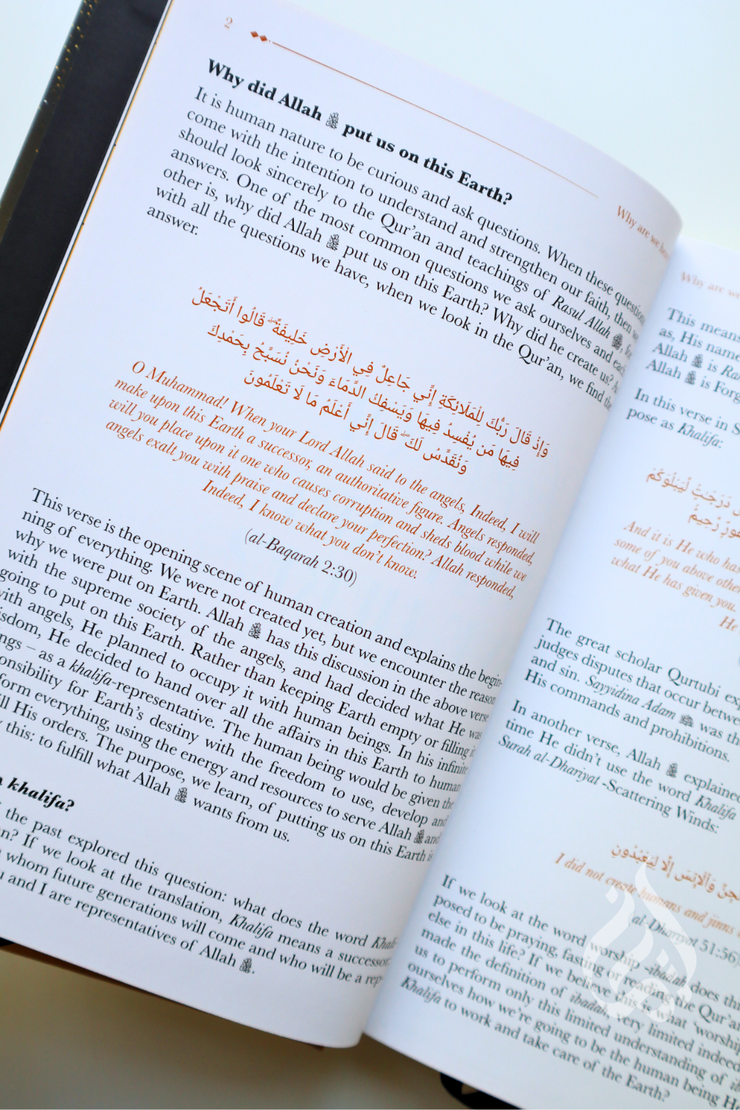 2
Why did Allah ﷻ put us on this Earth?
It is human nature to be curious and ask questions. When these question
come with the intention to understand and strengthen our faith, then we
should look sincerely to the Qur'an and teachings of Rasul Allah ﷺ, for
answers. One of the most common questions we ask ourselves and each
other is, why did Allah ﷻ put us on this Earth? Why did he create us? As
with all the questions we have, when we look in the Qur'an, we find the
answer.
وَإِذْ قَالَ رَبُّكَ لِلْمَلَائِكَةِ إِنِّي جَاعِلٌ فِي الْأَرْضِ خَلِيفَةً ۖ قَالُوا أَتَجْعَلُ
فِيهَا مَن يُفْسِدُ فِيهَا وَيَسْفِكُ الدِّمَاءَ وَنَحْنُ نُسَبِّحُ بِحَمْدِكَ
وَنُقَدِّسُ لَكَ ۖ قَالَ إِنِّي أَعْلَمُ مَا لَا تَعْلَمُونَ
O Muhammad! When your Lord Allah said to the angels, Indeed, I will
make upon this Earth a successor, an authoritative figure. Angels responded,
will you place upon it one who causes corruption and sheds blood while we
angels exalt you with praise and declare your perfection? Allah responded,
Indeed, I know what you don't know.
(al-Baqarah 2:30)
This verse is the opening scene of human creation and explains the begin-
ning of everything. We were not created yet, but we encounter the reason
why we were put on Earth. Allah ﷻ has this discussion in the above verse
with the supreme society of the angels, and had decided what He was
going to put on this Earth. Rather than keeping Earth empty or filling it
with angels, He planned to occupy it with human beings. In his infinite
wisdom, He decided to hand over all the affairs in this Earth to human
ngs – as a khalifa-representative. The human being would be given the
onsibility for Earth's destiny with the freedom to use, develop and
form everything, using the energy and resources to serve Allah ﷻ and
ll His orders. The purpose, we learn, of putting us on this Earth is
this: to fulfill what Allah ﷻ wants from us.
khalifa?
the past explored this question: what does the word Khali-
n? If we look at the translation, Khalifa means a successor,
whom future generations will come and who will be a rep-
u and I are representatives of Allah ﷻ.
Why are we her
Why are we
This means
as, His name
Allah ﷻ is Ra
Allah ﷻ is Forg
In this verse in S
pose as Khalifa:
دَرَجَٰتٍ لِّيَبْلُوَكُمْ
رَّحِيمٌ
And it is He who has
some of you above other
what He has given you.
He
The great scholar Qurtubi exp
judges disputes that occur betwe
and sin. Sayyidina Adam was th
His commands and prohibitions.
In another verse, Allah ﷻ explained
time He didn't use the word Khalifa
Surah al-Dhariyat -Scattering Winds:
جِنَّ وَالْإِنسَ إِلَّا لِيَعْبُدُونِ
I did not create humans and jinns
al-Dhariyat 51:56)
If we look at the word worship -ibadah does th
posed to be praying, fasting, reading the Qur'a
else in this life? If we believe this is what 'worshi
made the definition of ibadah very limited indeed
us to perform only this limited understanding of
ourselves how we're going to be the human being He
Khalifa to work and take care of the Earth?